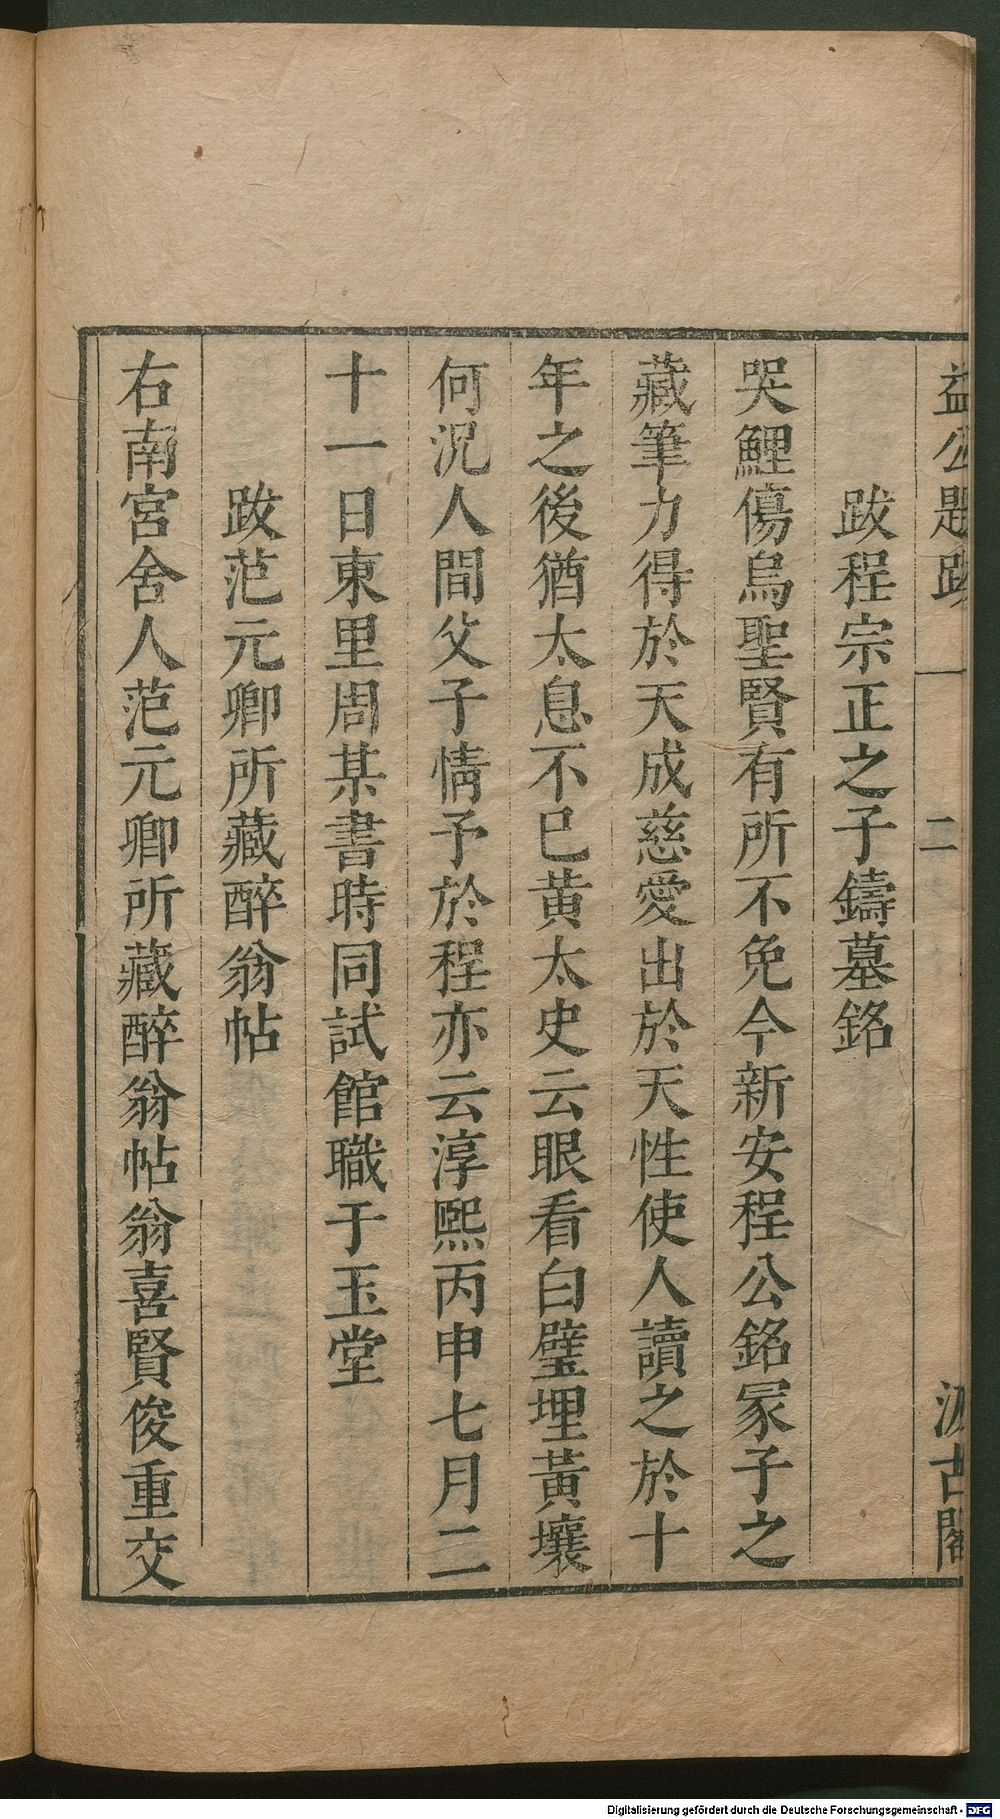 益公題跋 一 二 汲古閣
跋程宗正之子鑄墓銘
哭鯉傷烏聖賢有所不免今新安程公銘冢子之
藏筆力得於天成慈愛出於天性使人讀之於十
年之後猶太息不已黃太史云眼看白璧埋黃壤
何況人間父子情予於程亦云淳熙丙申七月二
十一日東里周某書時同試館職于玉堂
跋范元卿所藏醉翁帖
右南宮舍人范元卿所藏醉翁帖翁喜賢俊重交
Digitalisierung gefördert durch die Deutsche Forschungsgemeinschaft - DFG